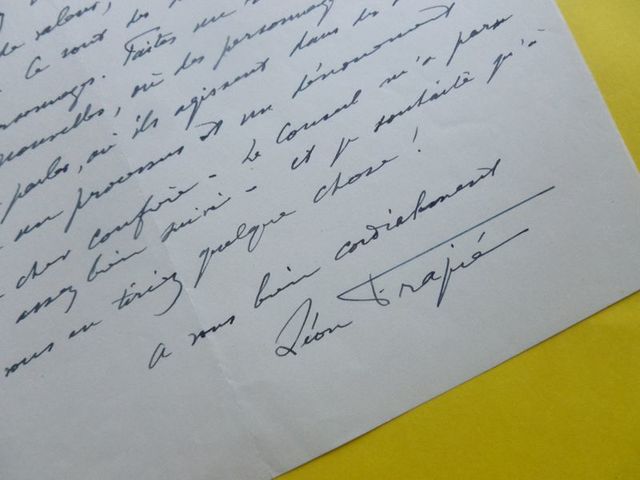 de valeur,
Ce sont des
personnages. Faites un
nouvelles, où des personnages
parlés, où ils agissent dans des
un processus et un dénouement
cher confrère - Le Conseil m'a paru
assez bien suivi - et je souhaite qu'
vous en tiriez quelque chose!
A vous bien cordialement
Léon Frapié